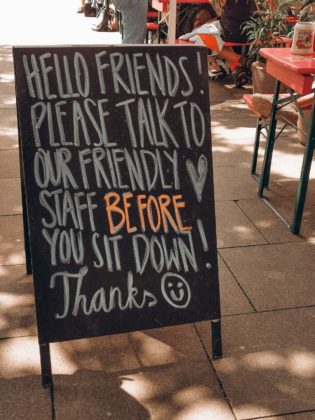 HELLO FRIENDS!
PLEASE TALK TO
OUR FRIENDLY
STAFF BEFORE
YOU SIT DOWN!
Thanks